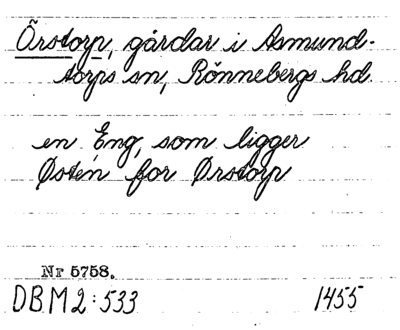 Örstorp, gårdar i Asmund-
torps sn, Rönnebergs hd.
en Eng, som ligger
Østen for Ørstorp
Nr 5758.
DBM2:533 1455